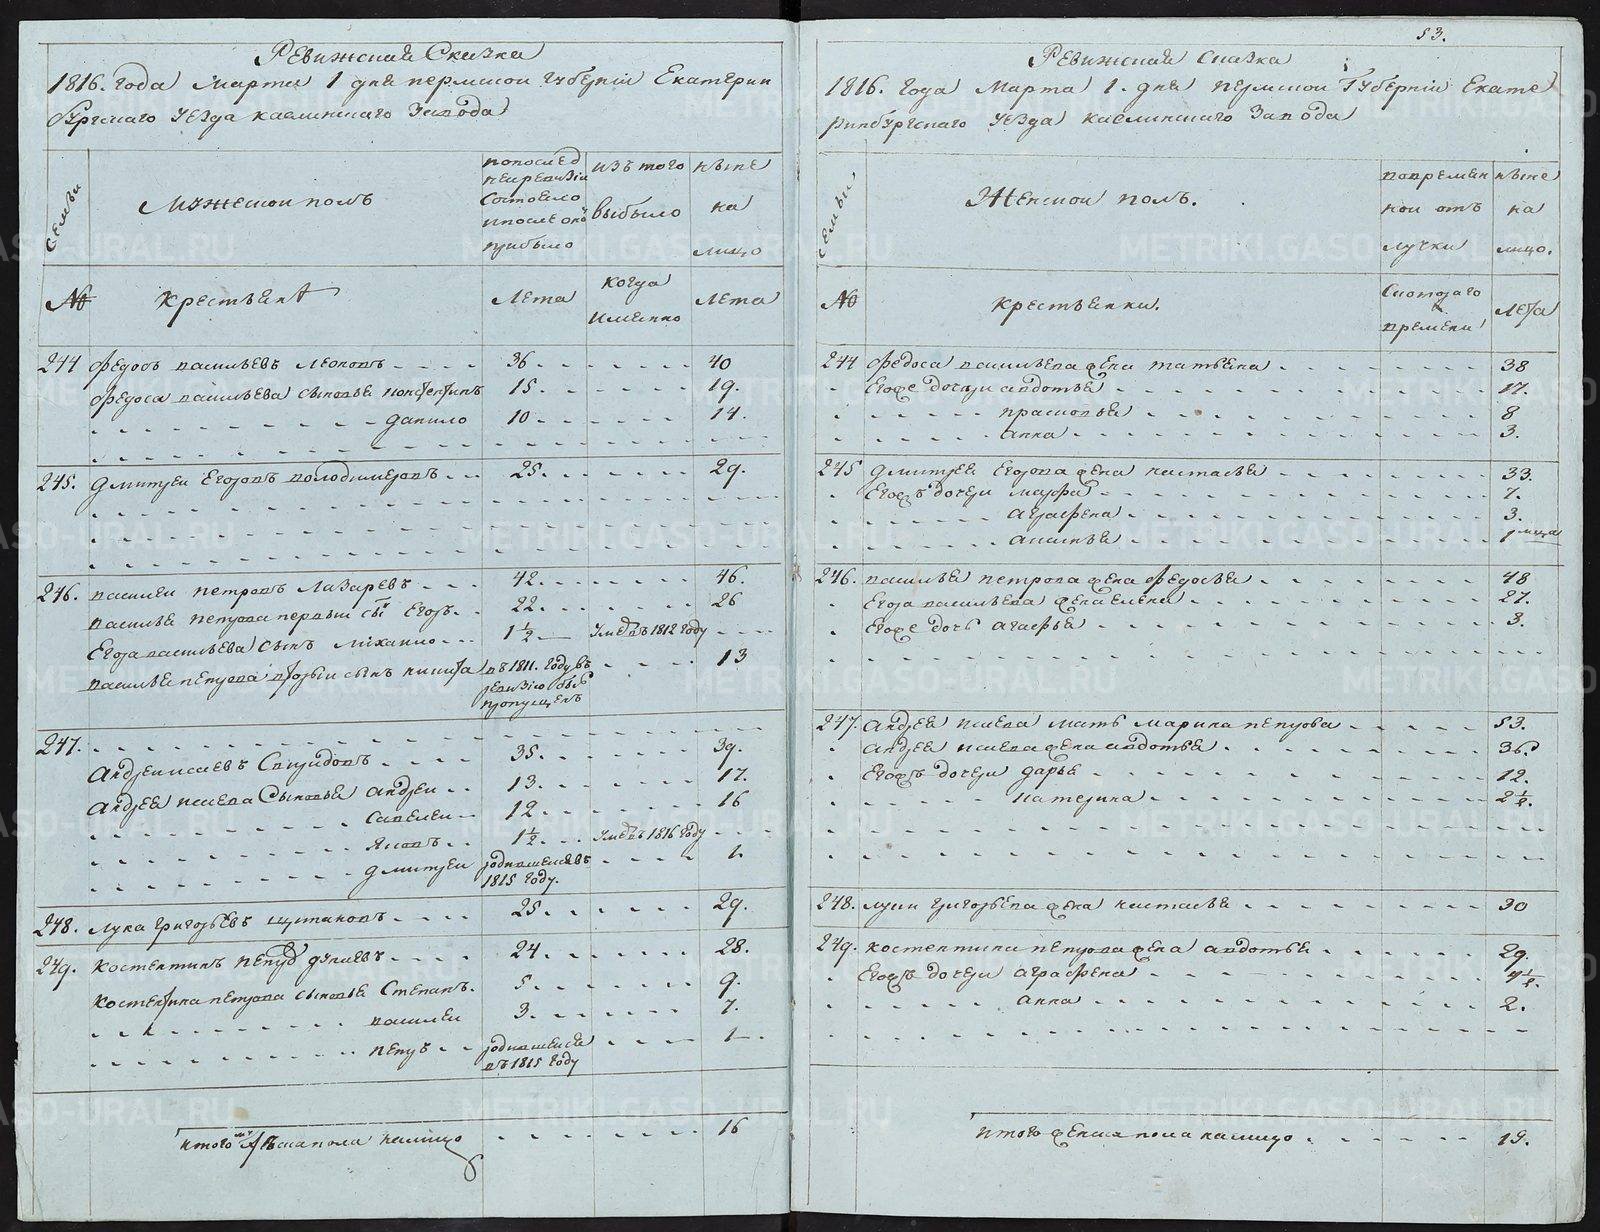 Ревижская Сказка
1816. года Марта 1 дня пермской губерніи Екатерин
бургскаго уезда каслинскаго Завода
Семьи
Мужеской полъ
попослед
ней ревизіи
Состояло
ипосле оной
прибыло
изъ того
выбыло
ныне
на
лицо
№
Крестьянѣ
Лета
когда
именно
Лета
244 Федоръ васильевъ леоновъ 36 40
Федора васильева сыновья констентинъ 15. 19.
данило 10 14.
245. Дмитреи Егоровъ володимеровъ 25. 29.
246. василеи петровъ Лазаревъ 42. 46.
василья петрова первыи сынъ Егоръ 22. 26
Егора васильева сынъ михаило 1½ умре въ 1812 году
василья петрова вторыи сынъ никита въ 1811. году въ 13
ревизію былъ
пропущенъ
247.
Андреи исаевъ Свиридовъ 35. 39.
Андрея исаева Сыновья Андреи 13. 17.
савелеи 12 16
Яковъ 1½ умре въ 1816 году
дмитреи родившеися въ 1.
1815 году.
248. лука григорьевъ щутановъ 25. 29.
249. костентинъ петровъ 24. 28.
костентина петрова сыновья Степанъ. 5. 9.
василеи 3. 7.
петръ родившеися 1.
въ 1815 году
итого мужеска пола налицо 16
53.
Ревижская Сказка
1816. года Марта 1. дня пермской Губерніи Екате
ринбургскаго уезда каслинскаго Завода
Семьи
Женской полъ.
вовремен
ной отъ
лучки
ныне
на
лицо.
№
крестьянки.
Скотораго
времени
Лета
244 Федора васильева жена татьяна 38
Егоже дочери авдотья 17.
прасковья 8
анна 3.
245 дмитрея Егорова жена настасья 33.
Егожъ дочери марфа 7.
аграфена 3.
анисья 1 меца
246. василья петрова жена федосья 48
Егора васильева жена елена 27.
Егоже дочь агафья 3.
247. Андрея исаева мать марина петрова 53.
андрея исаева жена авдотья 36.
Егожъ дочери дарья 12.
катерина 2½.
248. луки григорьева жена настасья 30
249. костентина петрова жена авдотья 29.
Егожъ дочери аграфена 4½.
анна 2.
итого женска пола налицо 19.
METRIKI.GASO-URAL.RU